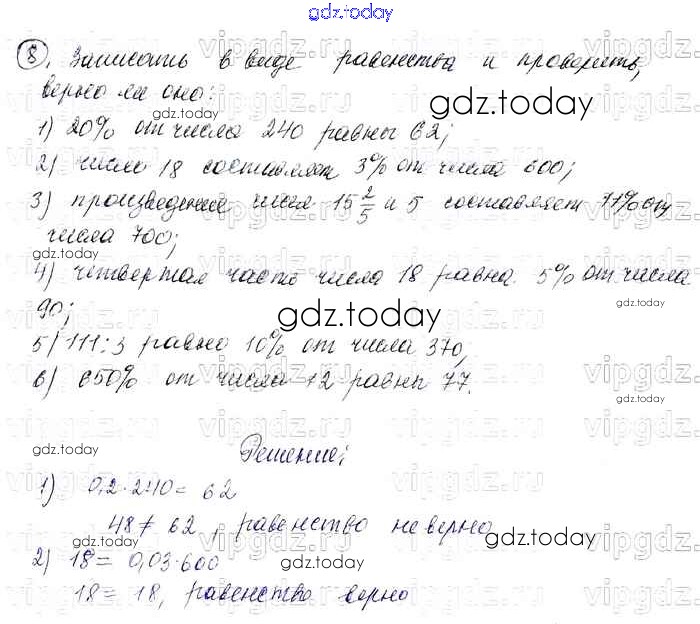 gdz.today
8. Записать в виде равенства и проверить,
верно ли оно:
gdz.today
1) 20% от числа 240 равны 62;
2) число 18 составляет 3% от числа 600;
3) произведение чисел 15 2/5 и 5 составляет 11% от
числа 700;
gdz.today
4) четвертая часть числа 18 равна 5% от числа
90;
gdz.today
gdz.today
5) 111:3 равно 10% от числа 370;
6) 650% от числа 12 равны 77.
gdz.today
gdz.today
Решение:
1) 0,2·240 = 62
48 ≠ 62, равенство неверно
gdz.today
gdz.today
2) 18 = 0,03·600
18 = 18, равенство верно